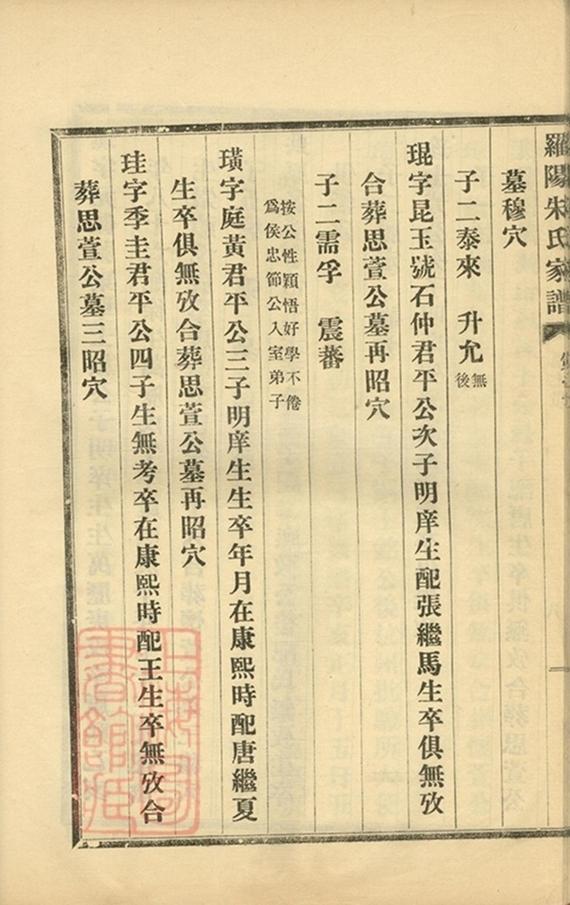 羅陽朱氏家譜
墓穆穴
子二泰來　升允無後
琨字昆玉號石仲君平公次子明庠生配張繼馬生卒俱無攷
合葬思萱公墓再昭穴
子二需孚　震蕃
按公性穎悟好學不倦
爲侯忠節公入室弟子
璜字庭黃君平公三子明庠生生卒年月在康熙時配唐繼夏
生卒俱無攷合葬思萱公墓再昭穴
珪字季圭君平公四子生無考卒在康熙時配王生卒無攷合
葬思萱公墓三昭穴